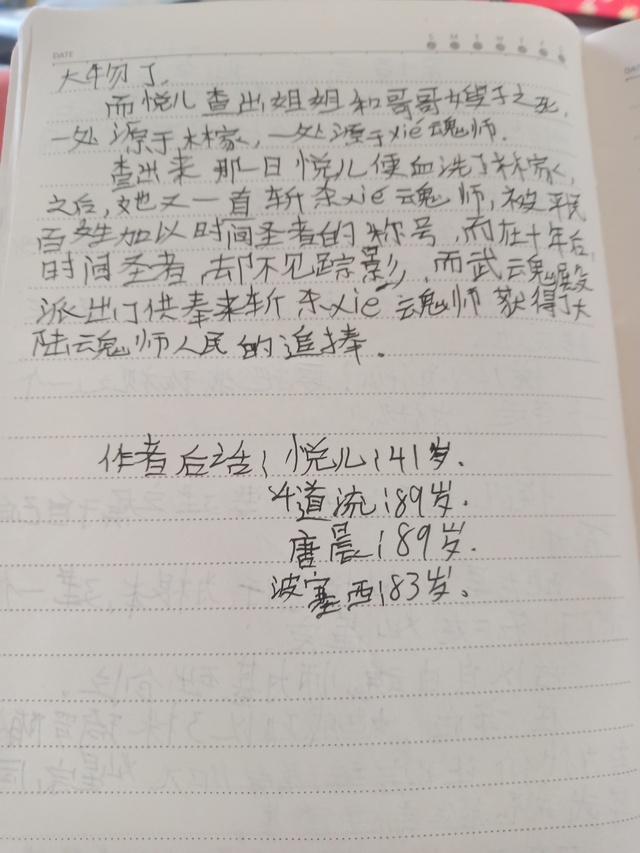 DATE
S M T W T F S
大牛勿了.
而悦儿查出姐姐和哥哥嫂子之死,
一处源于林家,一处源于xie魂师.
查出来那一日悦儿便血洗了林家,
之后,她又一首斩杀xie魂师,被平民
百姓加以时间圣者的称号,而在十年后,
时间圣者却不见踪影,而武魂殿
派出门供奉来斩杀xie魂师获得了大
陆魂师人民的追捧.
作者后话:悦儿:41岁.
道流:89岁.
唐晨:89岁.
波塞西:83岁.